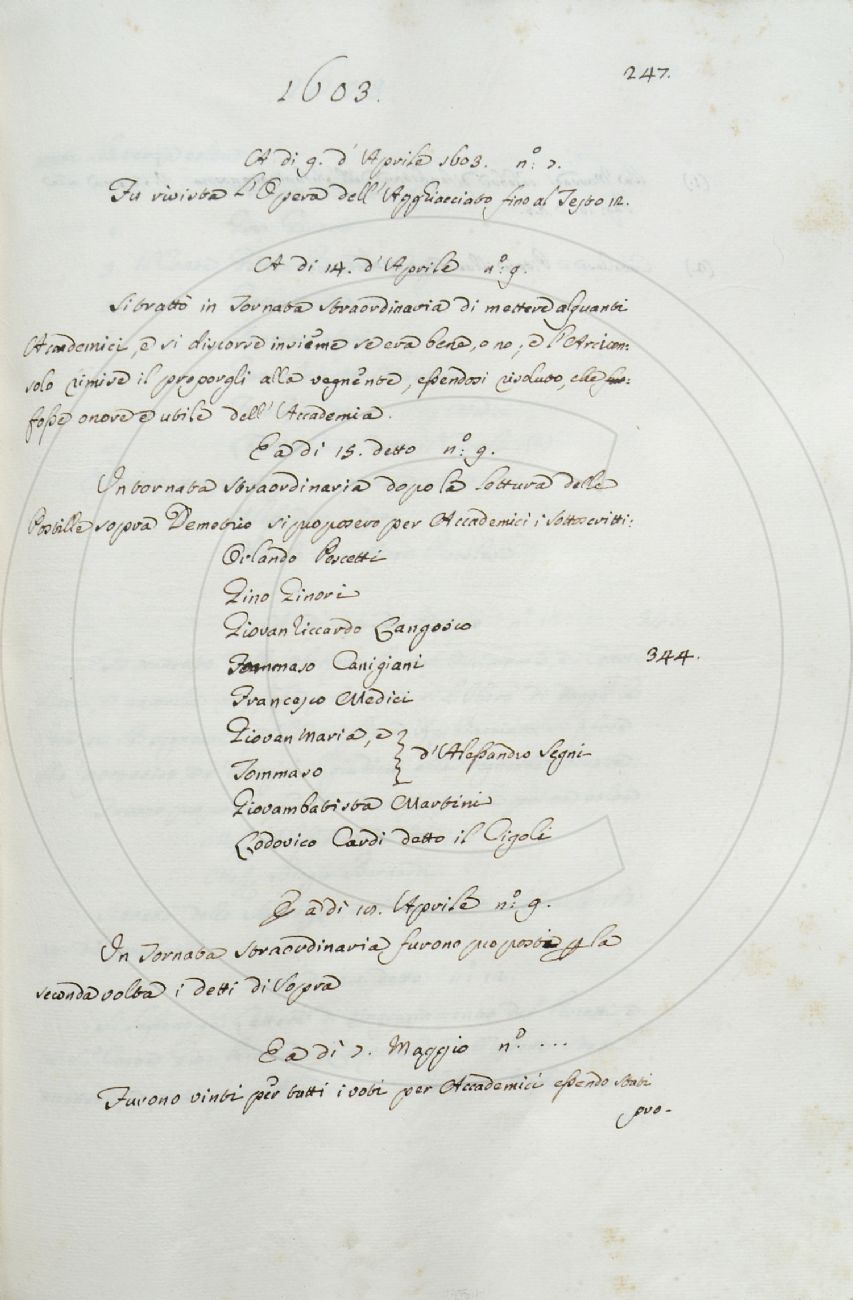 247.
1603.
A di 9. d'Aprile 1603. n.º 7.
Fu rivista l'Opera dell'Agghiacciato fino al Testo 12.
A di 14. d'Aprile n.º 9.
Si trattò in Tornata straordinaria di mettere alquanti
Accademici, e si discorse insieme se era bene, o no, e l'Arcicon:
solo rimise il proporgli alla vegnente, essendosi risoluto, che
fosse onore e utile dell'Accademia.
E a di 15. detto n.º 9.
In tornata straordinaria dopo la lettura delle
Postille sopra Demetrio si proposero per Accademici i sottoscritti:
Orlando Pescetti
Gino Ginori
Giovan Riccardo Langosco
Tommaso Canigiani
344.
Francesco Medici
Giovan Maria, e
Tommaso } d'Alessandro Segni
Giovambatista Martini
Lodovico Cardi detto il Cigoli
E a di Aprile n.º 9.
In Tornata straordinaria furono proposti p la
seconda volta i detti di sopra
E a di 7. Maggio n.º ...
Furono vinti per tutti i voti per Accademici essendo stati
pro-